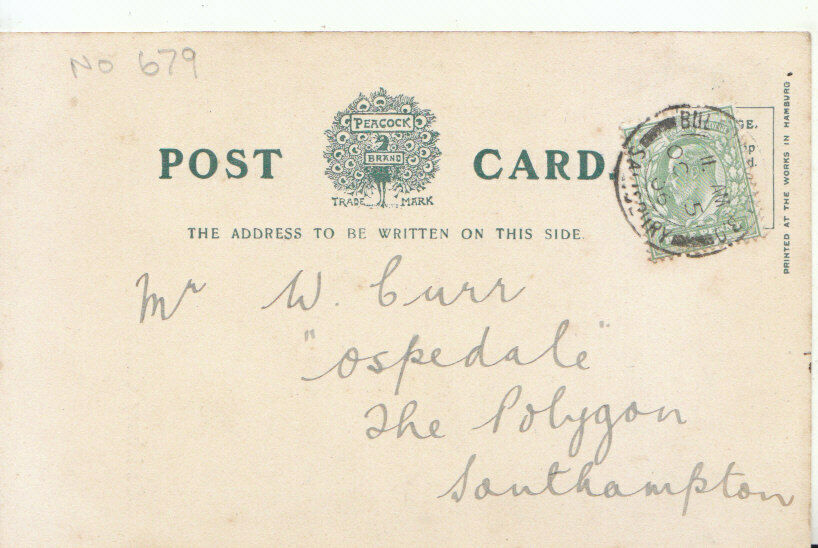 No 679
PEACOCK
BRAND
TRADE MARK
POST CARD.
THE ADDRESS TO BE WRITTEN ON THIS SIDE.
PRINTED AT THE WORKS IN HAMBURG.
OC 5
Mr W. Curr
"Ospedale"
The Polygon
Southampton